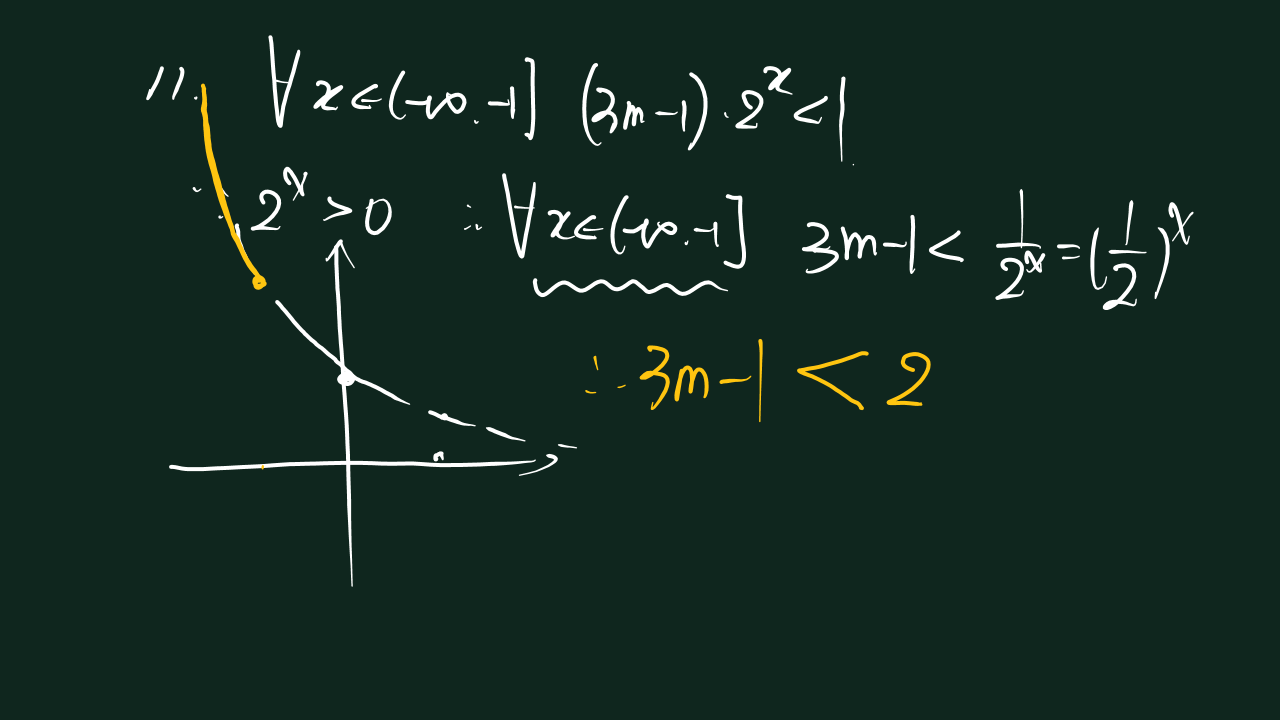 11. ∀x∈(-∞.-1] (3m-1)·2^x<1
∵ 2^x>0 ∴ ∀x∈(-∞.-1] 3m-1< 1/2^x=(1/2)^x
∴ 3m-1<2